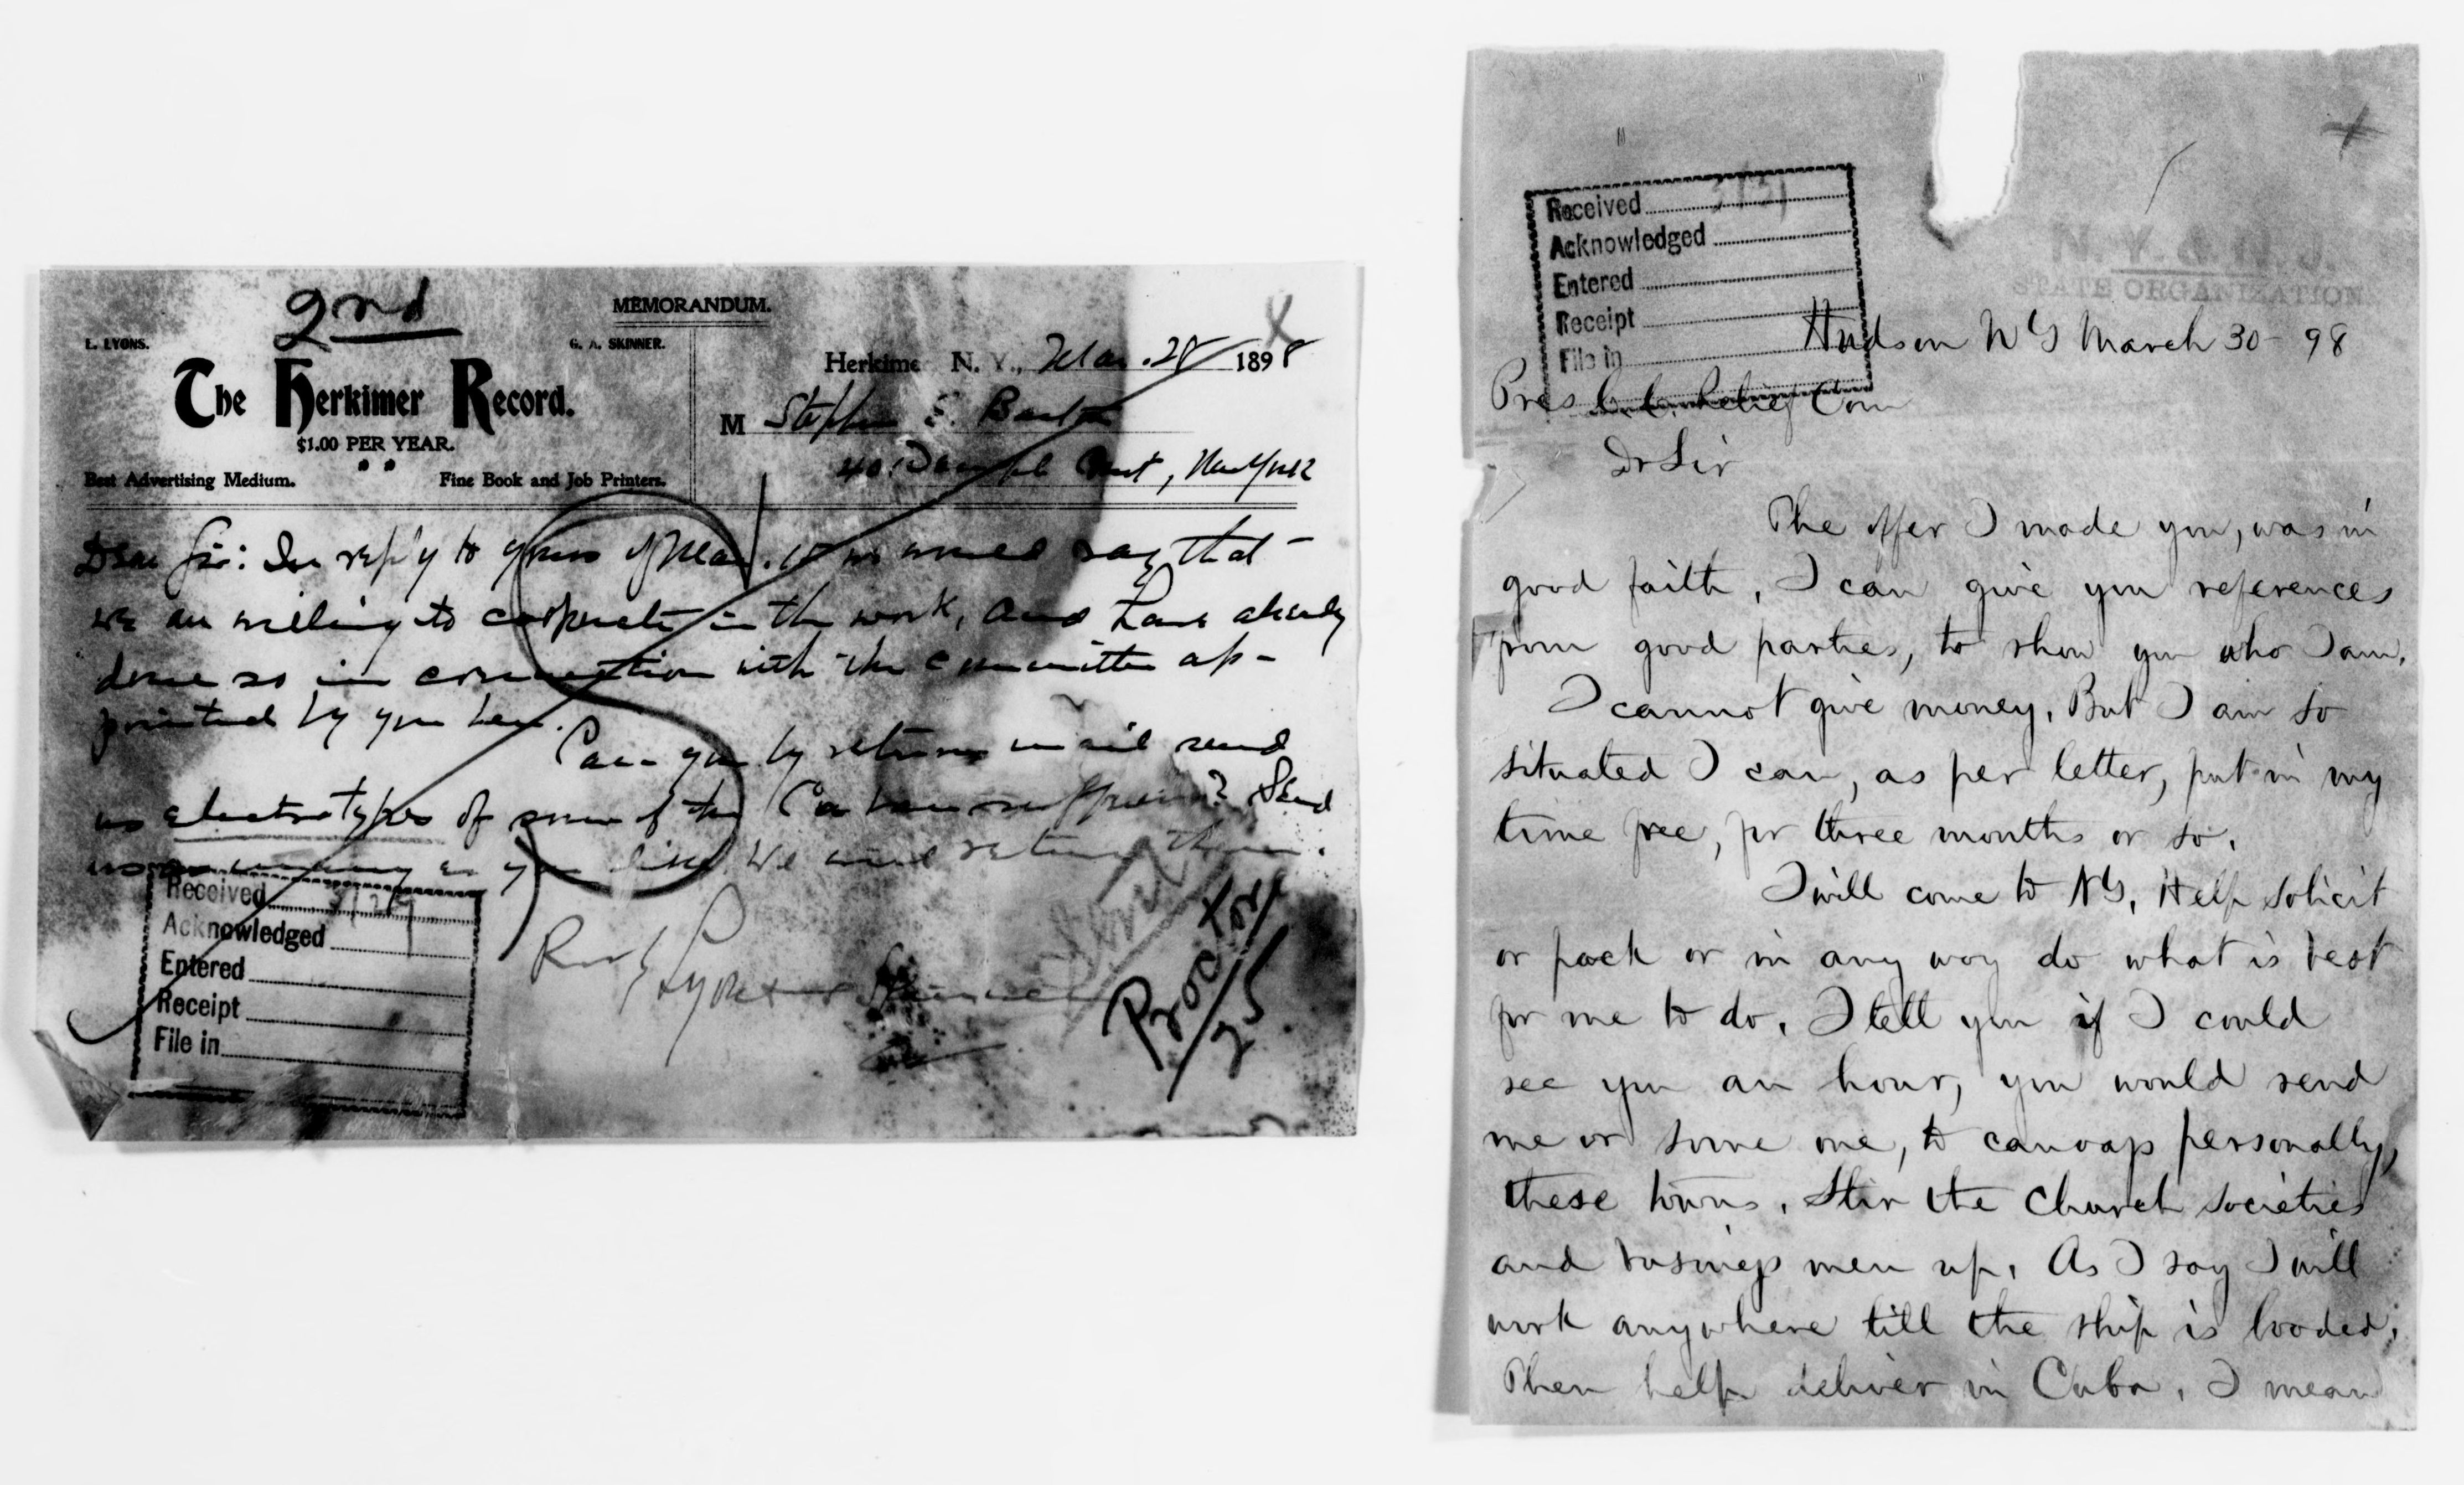 2nd
MEMORANDUM.
E. LYONS.
G. A. SKINNER.
The Herkimer Record.
$1.00 PER YEAR.
Best Advertising Medium.
Fine Book and Job Printers.
Herkimer N. Y., Mar. 28 1898
M Stephen E. Barton
New York
Dear Sir: In reply to yours of Mar. we would say that
we are willing to cooperate in the work, and have already
done so in connection with the committee ap-
pointed by you here.
Can you by return mail send
us electrotypes of some of the Cuban sufferers? Send
us as many as you like. We will return them.
Lyons & Skinner
Send
Proctor
25
Received 3/29
Acknowledged
Entered
Receipt
File in
Received 3/31
Acknowledged
Entered
Receipt
File in
N. Y. & N. J.
STATE ORGANIZATION
Hudson NY March 30 - 98
Pres C. C. Relief Com
Dr Sir
The offer I made you, was in
good faith, I can give you references
from good parties, to show you who I am.
I cannot give money, But I am so
situated I can, as per letter, put in my
time free, for three months or so.
I will come to NY, Help solicit
or pack or in any way do what is best
for me to do. I tell you if I could
see you an hour, you would send
me or some one, to canvass personally,
these towns. Stir the Church societies
and business men up. As I say I will
work anywhere till the ship is loaded,
Then help deliver in Cuba. I mean